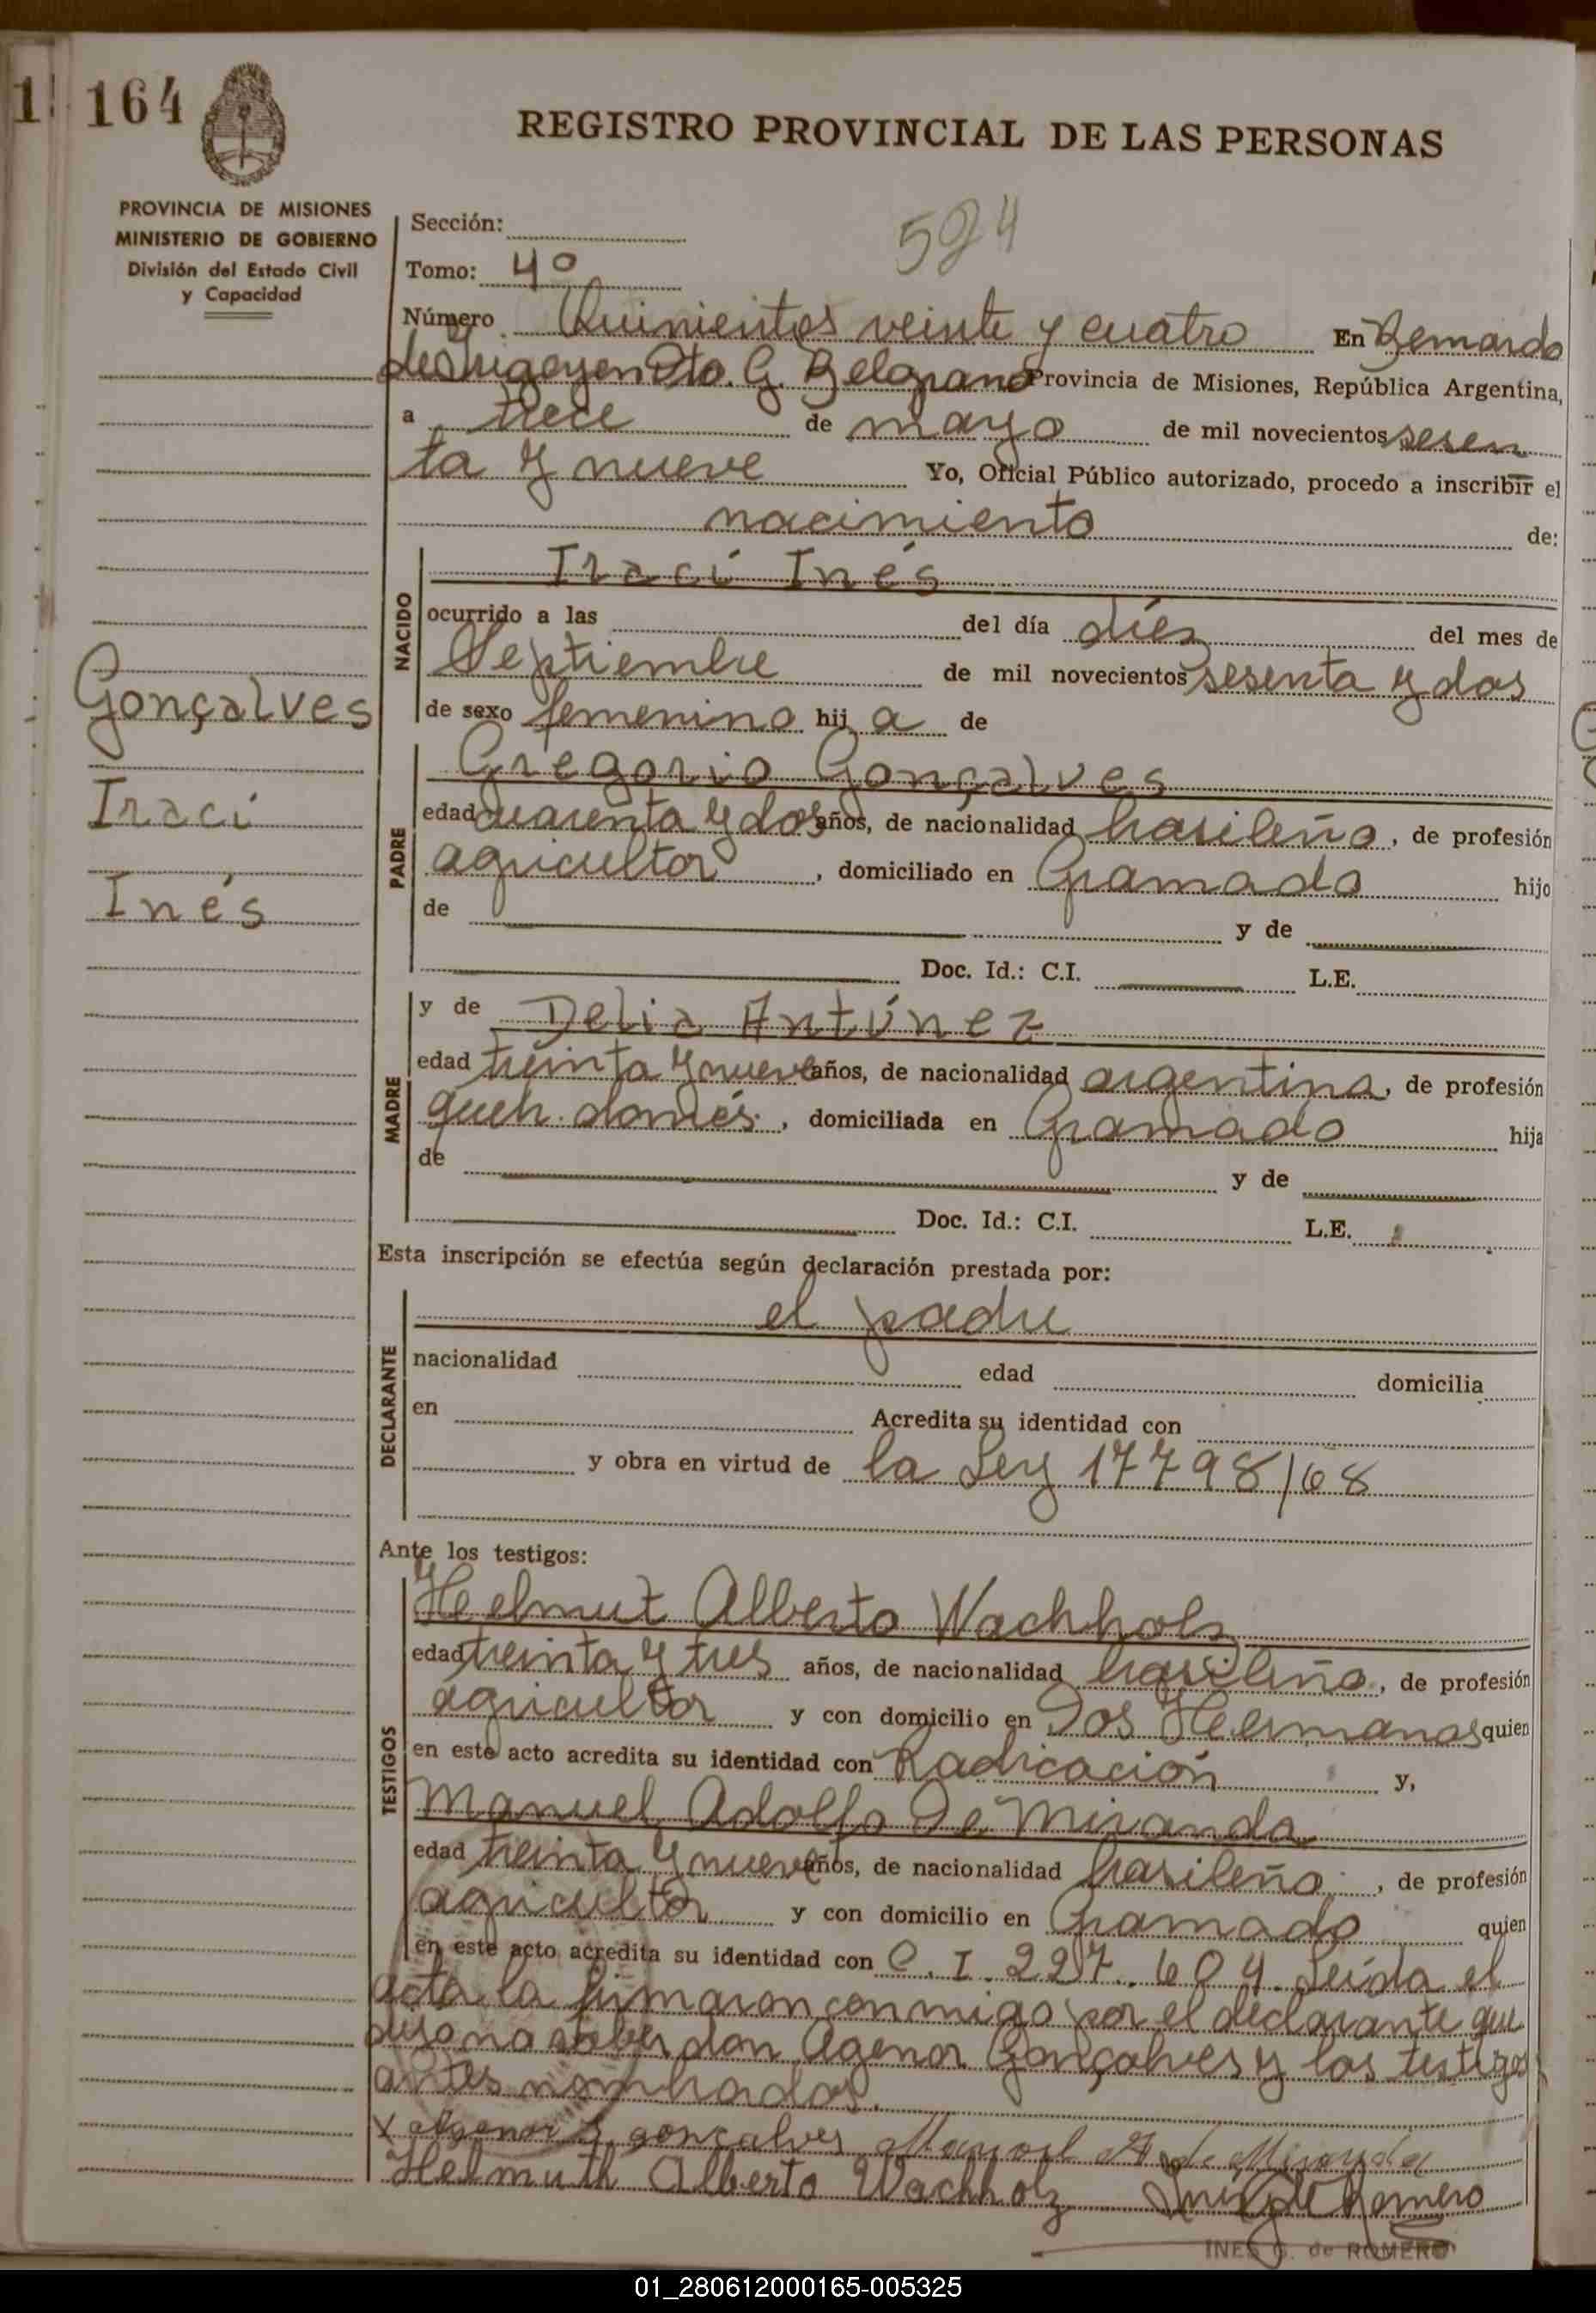 1
164
REGISTRO PROVINCIAL DE LAS PERSONAS
PROVINCIA DE MISIONES
MINISTERIO DE GOBIERNO
División del Estado Civil
y Capacidad
Sección:
524
Tomo: 4º
Número Quinientos veinte y cuatro En Bernardo
de Irigoyen Dto. G. Belgrano Provincia de Misiones, República Argentina,
a trece de mayo de mil novecientos sesen
ta y nueve Yo, Oficial Público autorizado, procedo a inscribir el
nacimiento de:
NACIDO
Iraci Inés
ocurrido a las del día diez del mes de
Septiembre de mil novecientos sesenta y dos
de sexo femenino hij a de
Gonçalves
Iraci
Inés
PADRE
Gregorio Gonçalves
edad cuarenta y dos años, de nacionalidad brasileño, de profesión
agricultor, domiciliado en Gramado hijo
de y de
Doc. Id.: C.I. L.E.
MADRE
y de Delia Antúnez
edad treinta y nueve años, de nacionalidad argentina, de profesión
queh. domés., domiciliada en Gramado hija
de y de
Doc. Id.: C.I. L.E.
Esta inscripción se efectúa según declaración prestada por:
DECLARANTE
el padre
nacionalidad edad domicilia
en Acredita su identidad con
y obra en virtud de la Ley 17798/68
Ante los testigos:
TESTIGOS
Helmut Alberto Wachholz
edad treinta y tres años, de nacionalidad brasileño, de profesión
agricultor y con domicilio en Dos Hermanas quien
en este acto acredita su identidad con Radicación y,
Manuel Adolfo De Miranda
edad treinta y nueve años, de nacionalidad brasileño, de profesión
agricultor y con domicilio en Gramado quien
en este acto acredita su identidad con C. I. 227.604. Leída el
acta la firmaron conmigo por el declarante que
dijo no saber don Agenor Gonçalves y los testigos
antes nombrados.
X Agenor gonçalves Manoel A de Miranda
Helmuth Alberto Wachholz Inés G de Romero
INES G. de ROMERO
01_280612000165-005325